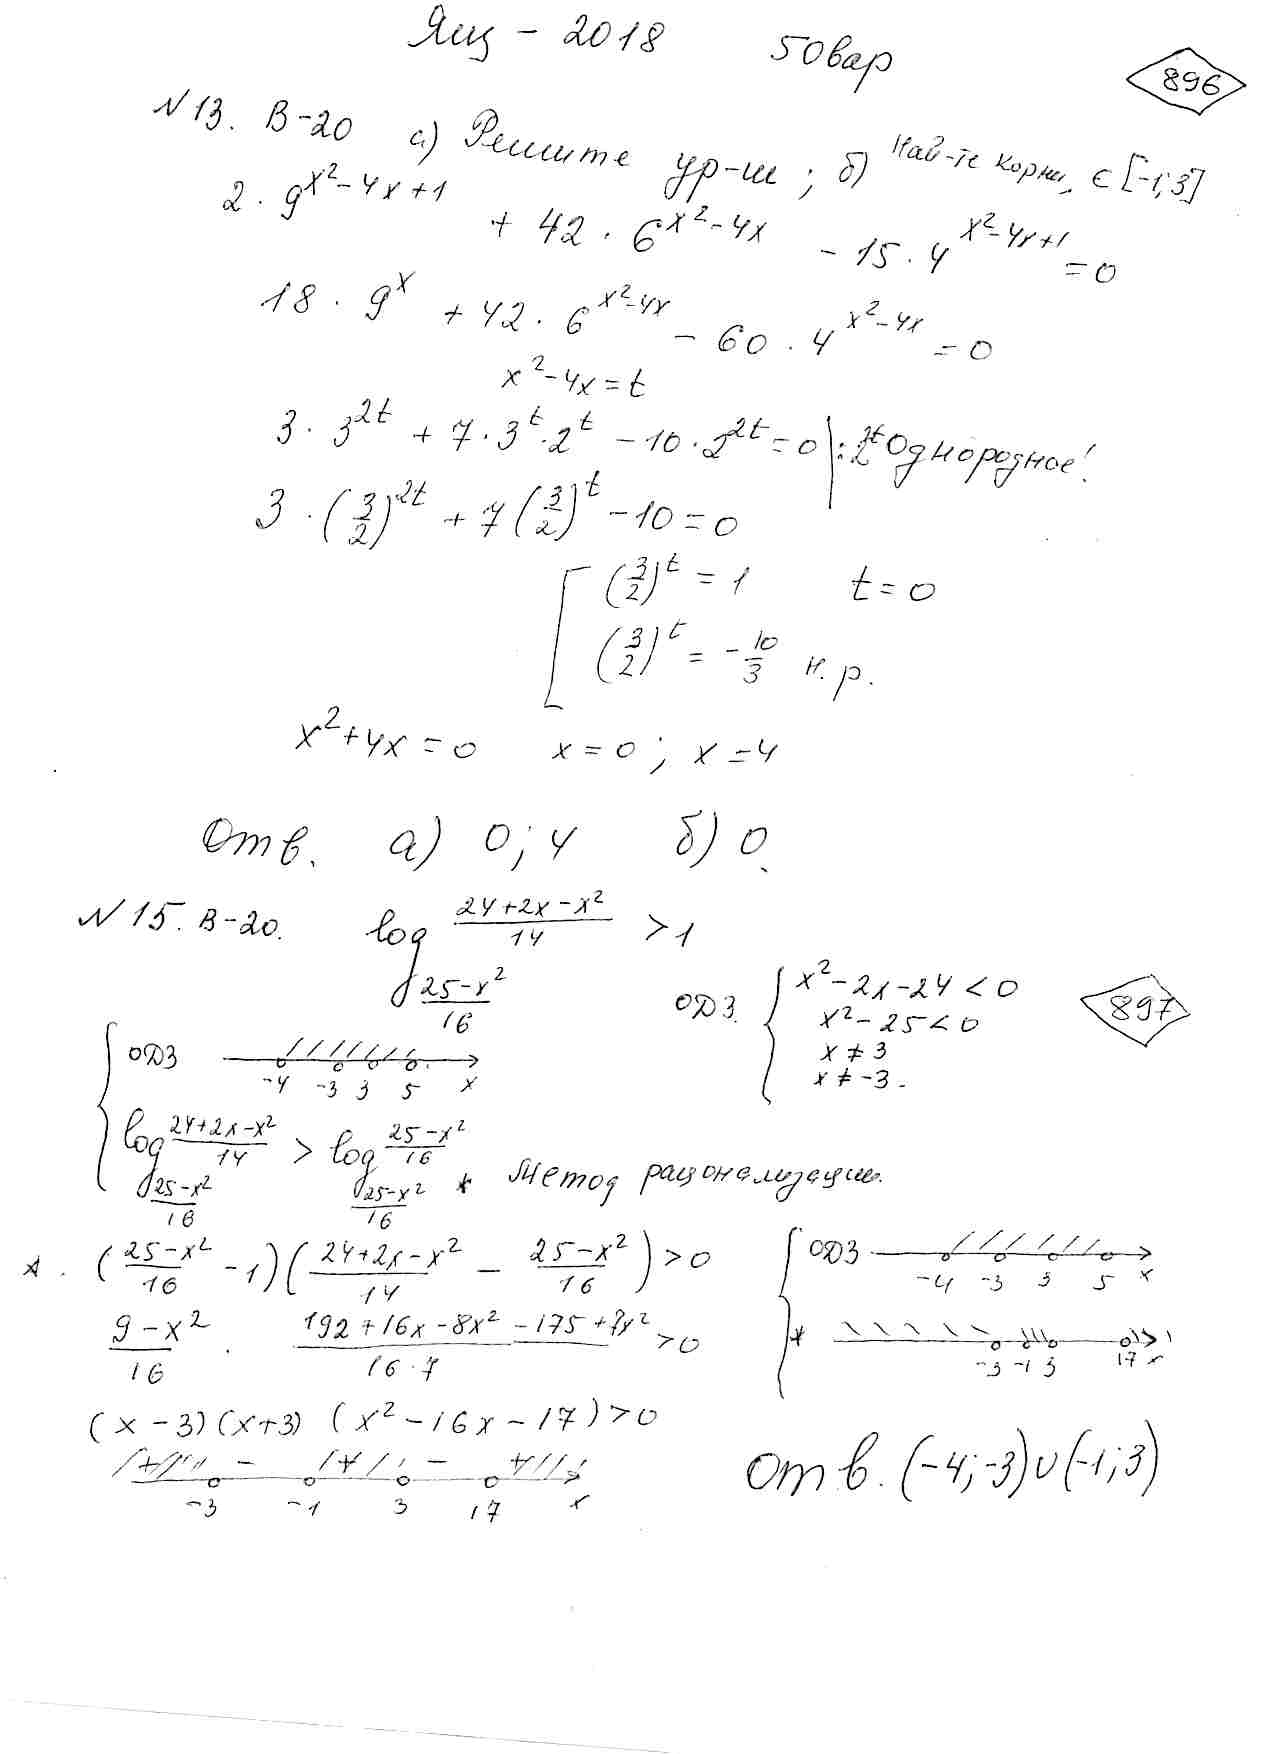 Ящ - 2018 50вар
896
N 13. В-20 а) Решите ур-ие ; б) Най-те корни, ∈ [-1; 3]
2 · 9^{x²-4x+1} + 42 · 6^{x²-4x} - 15 · 4^{x²-4x+1} = 0
18 · 9^x + 42 · 6^{x²-4x} - 60 · 4^{x²-4x} = 0
x² - 4x = t
3 · 3^{2t} + 7 · 3^t · 2^t - 10 · 2^{2t} = 0 | : 2^{2t} Однородное!
3 · (3/2)^{2t} + 7 (3/2)^t - 10 = 0
[ (3/2)^t = 1 t = 0
(3/2)^t = -10/3 н.р.
x² + 4x = 0 x = 0 ; x = 4
Отв. а) 0; 4 б) 0.
N 15. В-20. log_{(25-x²)/16} (24+2x-x²)/14 > 1
ОДЗ. { x² - 2x - 24 < 0
x² - 25 < 0
x ≠ 3
x ≠ -3.
897
{ ОДЗ -4 -3 3 5 x
log_{(25-x²)/16} (24+2x-x²)/14 > log_{(25-x²)/16} (25-x²)/16 * Метод рационализации.
* . ((25-x²)/16 - 1)((24+2x-x²)/14 - (25-x²)/16) > 0
(9-x²)/16 · (192+16x-8x²-175+7x²)/(16·7) > 0
(x-3)(x+3) (x²-16x-17) > 0
+ - + - +
-3 -1 3 17 x
{ ОДЗ -4 -3 3 5 x
* -3 -1 3 17 x
Отв. (-4; -3) ∪ (-1; 3)